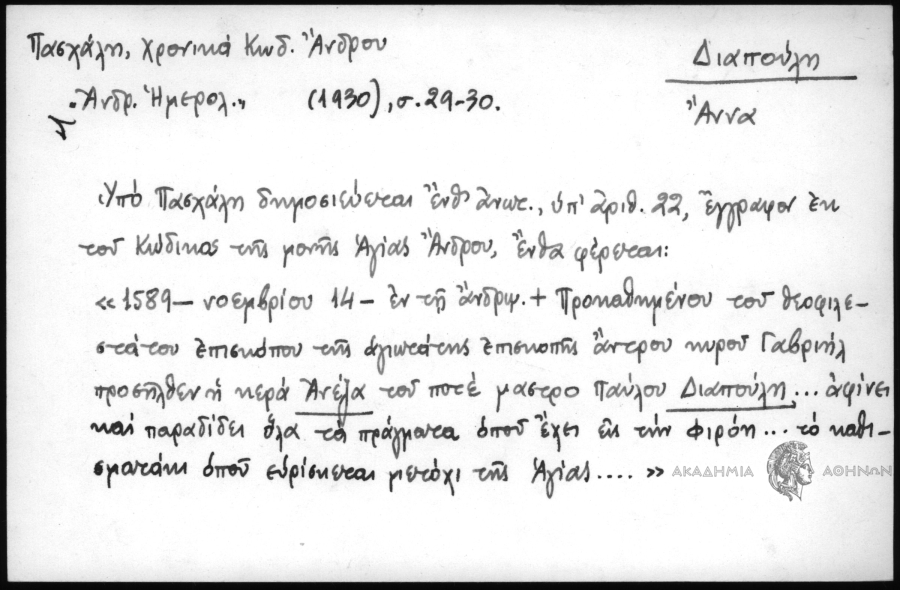 Πασχάλη, Χρονικά Κωδ. Ἄνδρου
"Ἀνδρ. Ἡμερολ.„ (1930), σ. 29-30.
Διαπούλη
Ἄννα
Ὑπό Πασχάλη δημοσιεύεται ἔνθ' ἀνωτ., ὑπ' ἀριθ. 22, ἔγγραφον ἐκ
τοῦ Κώδικος τῆς μονῆς Ἁγίας Ἄνδρου, ἔνθα φέρεται:
«1589 – νοεμβρίου 14 – ἐν τῇ ἄνδρῳ. + Προκαθημένου του θεοφιλε-
στάτου ἐπισκόπου τῆς ἁγιωτάτης ἐπισκοπῆς ἄντρου κυροῦ Γαβριήλ
προσῆλθεν ἡ κερά Ἀνέζα τοῦ ποτέ μαστρο Παύλου Διαπούλη ... ἀφίνει
καί παραδίδει ὅλα τά πράγματα ὁποῦ ἔχει εἰς τήν φιρόη ... τό καθι-
σματάκι ὁποῦ εὑρίσκεται μετόχι τῆς Ἁγίας .... »
ΑΚΑΔΗΜΙΑ ΑΘΗΝΩΝ